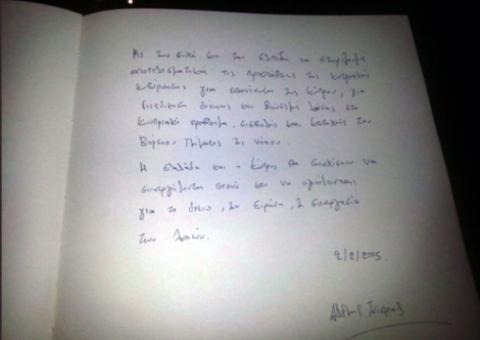 Με την ευχή και την ελπίδα να στηρίξουμε
αποτελεσματικά τις προσπάθειες της κυπριακής
κυβέρνησης για επανένωση της Κύπρου, για
δίκαιη και βιώσιμη λύση στο
Κυπριακό πρόβλημα, και
Βόρειου Τμήματος της νήσου.
Η Ελλάδα και η Κύπρος θα συνεχίσουν να
συνεργάζονται στενά και να αγωνίζονται
για το δίκιο, την ειρήνη, τη συνεργασία
των λαών.
2/2/2015
Αλέξης Τσίπρας